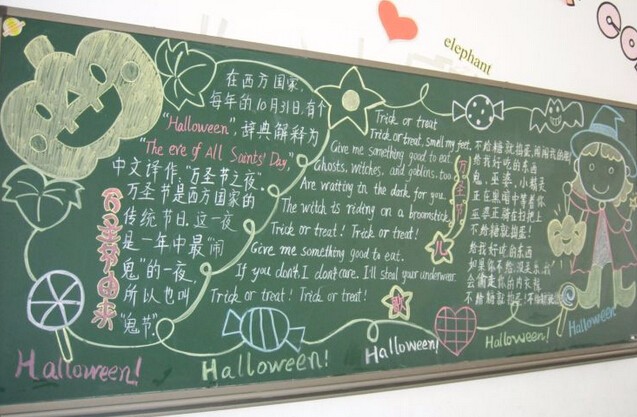 elephant
万圣由来
在西方国家,
每年的10月31日,有个
"Halloween",辞典解释为
"The eve of All Saints' Day,
中文译作,"万圣节之夜".
万圣节是西方国家的
传统节日.这一夜
是一年中最"闹
鬼"的一夜,
所以也叫
"鬼节".
Trick or treat
Trick or treat, smell my feet,
Give me something good to eat.
Ghosts, witches, and goblins, too
Are waiting in the dark for you.
The witch is riding on a broomstick,
Trick or treat! Trick or treat!
Give me something good to eat.
If you don't I don't care. I'll steal your underwear.
Trick or treat! Trick or treat!
万圣节
儿
歌
不给糖就捣蛋,闻闻我的脚
给我好吃的东西
鬼,巫婆,小精灵
正在黑暗中等着你
巫婆正骑在扫把上
不给糖就捣蛋!
给我好吃的东西
如果你不给,没关系,我
会偷走你的内衣裤
不给糖就捣蛋!
Halloween!
Halloween!
Halloween!
Halloween!
Halloween